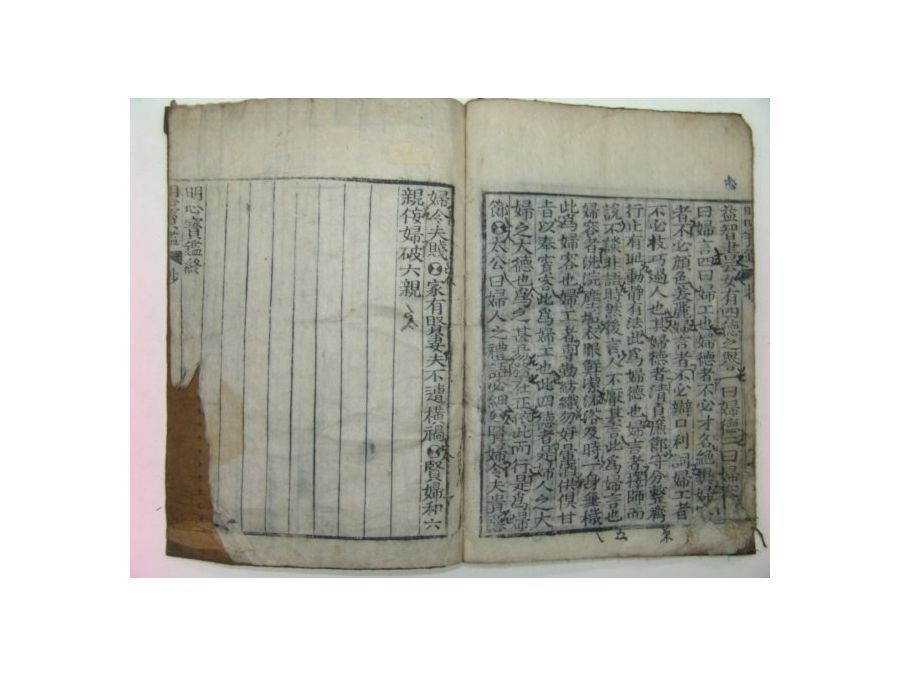 益智書云女有四德之譽一曰婦德二曰婦容三
曰婦言四曰婦工也婦德者不必才名絶異婦容
者不必顔色美麗婦言者不必辯口利詞婦工者
不必技巧過人也其婦德者淸貞廉節守分整齊
行止有恥動静有法此爲婦德也婦言者擇師而
說不談非語時然後言人不厭其言此爲婦言也
婦容者洗浣塵垢衣服鮮潔沐浴及時一身無穢
此爲婦容也婦工者專勤紡織勿好暈酒供俱甘
旨以奉賓客此爲婦工也此四德者是婦人之大
婦之大德也爲之甚易務在正依此而行是爲婦
節太公曰婦人之禮語必細賢婦令夫貴
婦令夫賤家有賢妻夫不遭橫禍賢婦和六
親侫婦破六親
明心寶鑑終
明心寶鑑 抄